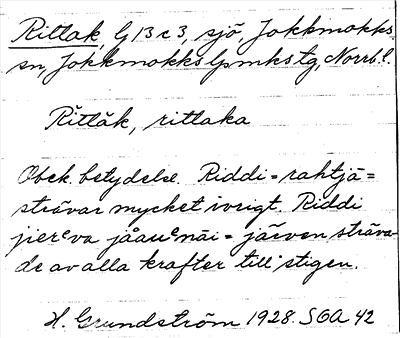 Ritlak, G 13 c 3, sjö, Jokkmokks
sn, Jokkmokks lpmkstg, Norrb. l.
Řitlăk, ritlaka
Obek. betydelse. Riddi = rahtjá =
strävar mycket ivrigt. Riddi
jierᵉva jåauᵉnäi = järven sträva-
de av alla krafter till stigen.
H. Grundström 1928. SOA 42